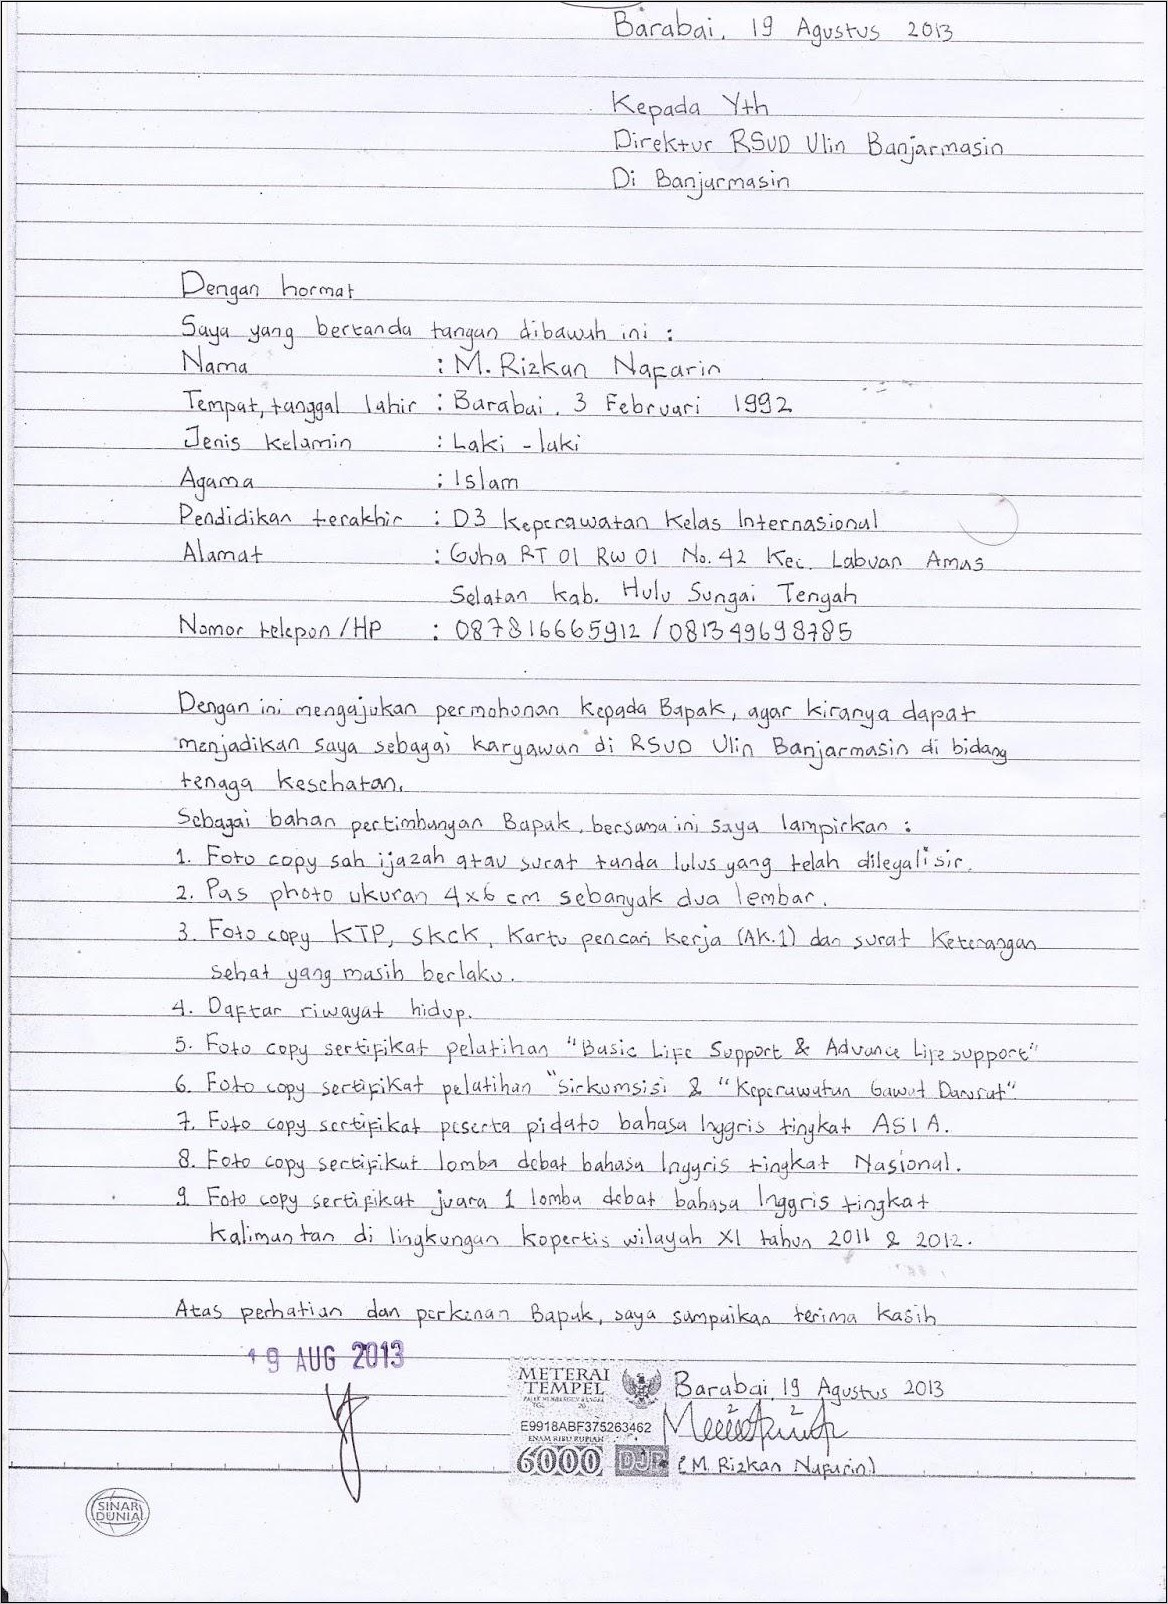 Barabai, 19 Agustus 2013
Kepada Yth
Direktur RSUD Ulin Banjarmasin
Di Banjarmasin
Dengan hormat
Saya yang bertanda tangan dibawah ini :
Nama : M. Rizkan Nafarin
Tempat, tanggal lahir : Barabai, 3 Februari 1992
Jenis kelamin : Laki - laki
Agama : Islam
Pendidikan terakhir : D3 Keperawatan Kelas Internasional
Alamat : Guha RT 01 RW 01 No. 42 Kec. Labuan Amas
Selatan Kab. Hulu Sungai Tengah
Nomor telepon / HP : 087816665912 / 081349698785
Dengan ini mengajukan permohonan kepada Bapak, agar kiranya dapat
menjadikan saya sebagai karyawan di RSUD Ulin Banjarmasin di bidang
tenaga kesehatan.
Sebagai bahan pertimbangan Bapak, bersama ini saya lampirkan :
1. Foto copy sah ijazah atau surat tanda lulus yang telah dilegalisir.
2. Pas photo ukuran 4x6 cm sebanyak dua lembar.
3. Foto copy KTP, SKCK, Kartu pencari kerja (AK.1) dan surat Keterangan
sehat yang masih berlaku.
4. Daftar riwayat hidup.
5. Foto copy sertifikat pelatihan "Basic Life Support & Advance Life support"
6. Foto copy sertifikat pelatihan "Sirkumsisi & "Keperawatan Gawat Darurat"
7. Foto copy sertifikat peserta pidato bahasa Inggris tingkat ASIA.
8. Foto copy sertifikat lomba debat bahasa Inggris tingkat Nasional.
9. Foto copy sertifikat juara 1 lomba debat bahasa Inggris tingkat
Kalimantan di lingkungan kopertis wilayah XI tahun 2011 & 2012.
Atas perhatian dan perkenan Bapak, saya sampaikan terima kasih
19 AUG 2013
METERAI
TEMPEL
Barabai, 19 Agustus 2013
TGL. 20
E9918ABF375263462
ENAM RIBU RUPIAH
6000 DJP
(M. Rizkan Nafarin)
SINAR
DUNIA